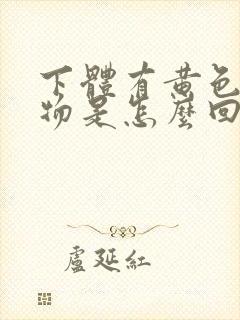 下體有黄色
物是怎麼回
盧延紅